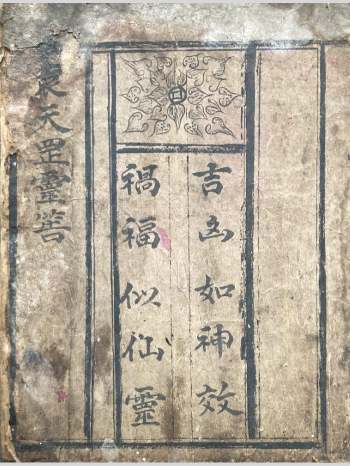 吉凶如神效
禍福似仙靈
袁天罡靈